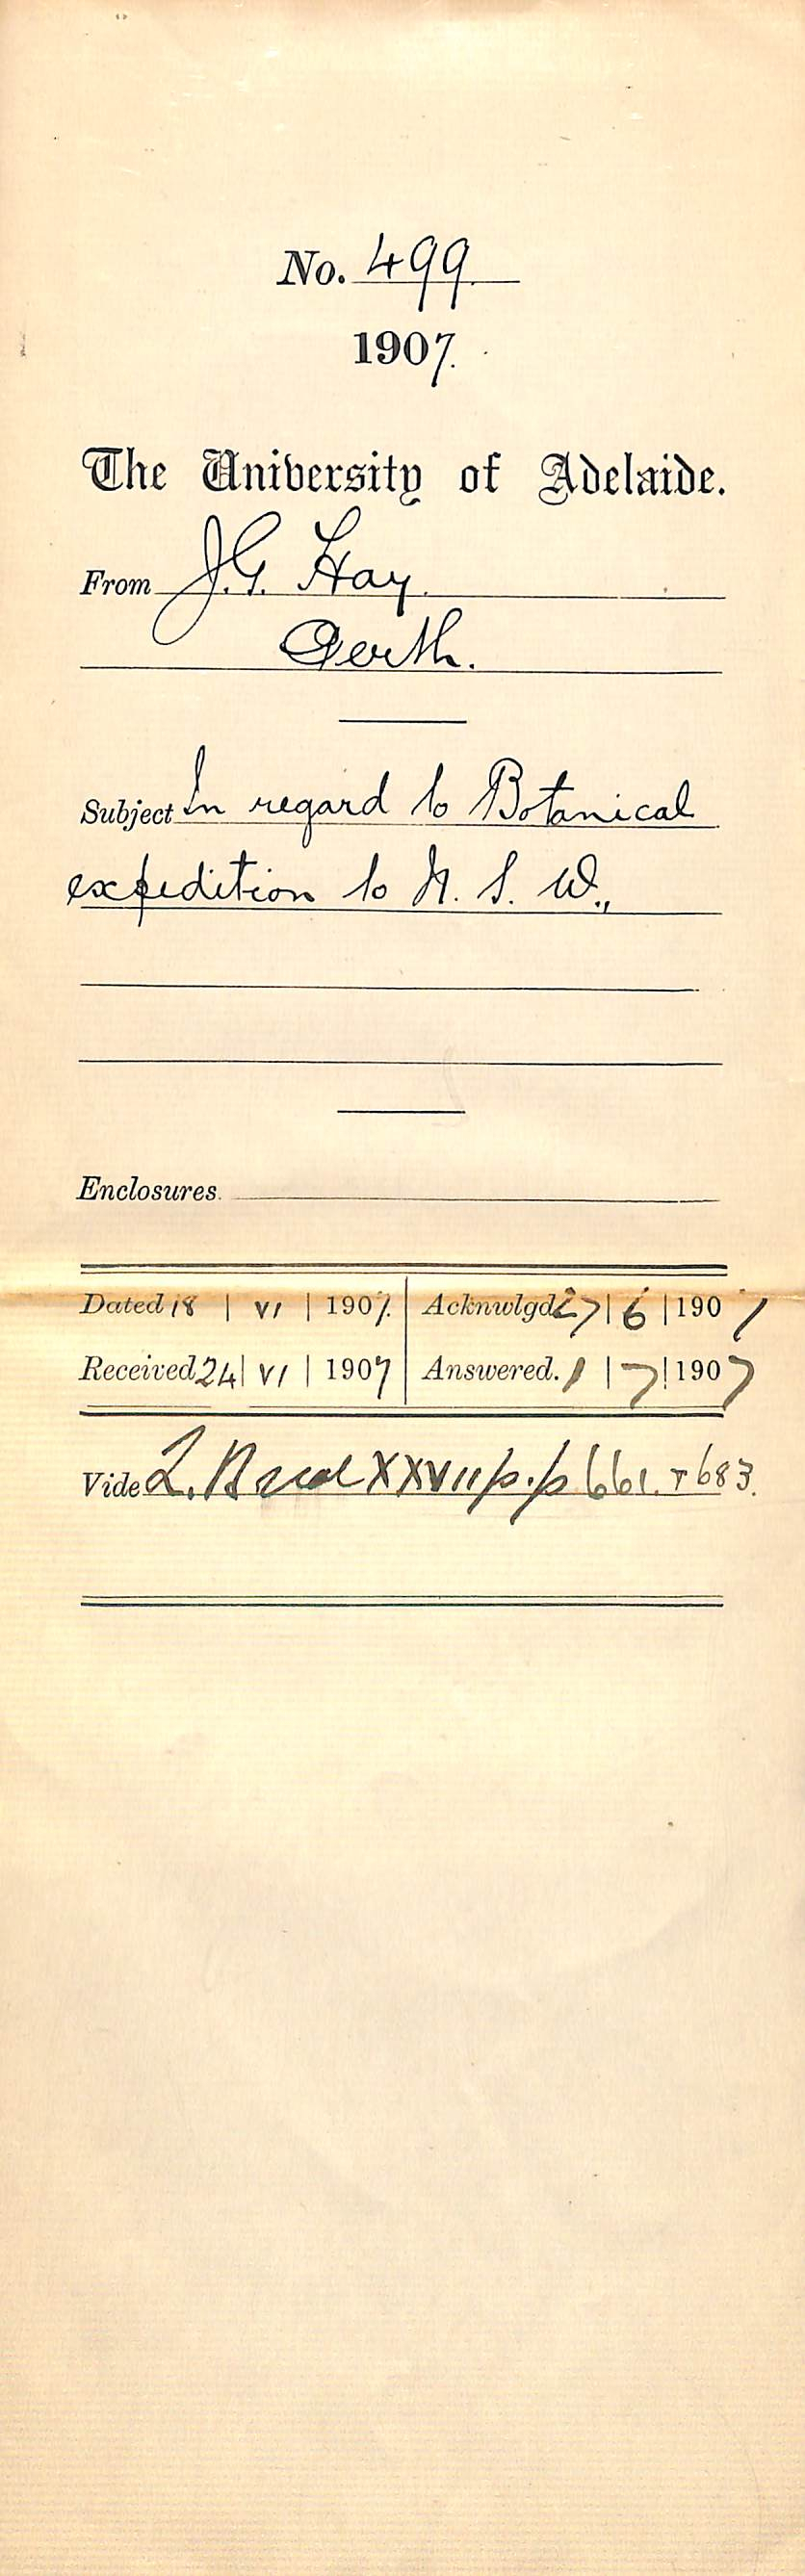 No. 499.
1907.
The University of Adelaide.
From J.G. Hay.
Perth.
Subject In regard to Botanical
expedition to N. S. W.,
Enclosures.
Dated 18 | VI | 1907. Acknwlgd. 27 | 6 | 1907
Received 24 | VI | 1907 Answered. 1 | 7 | 1907
Vide L. XXVII p.p 661. + 683.